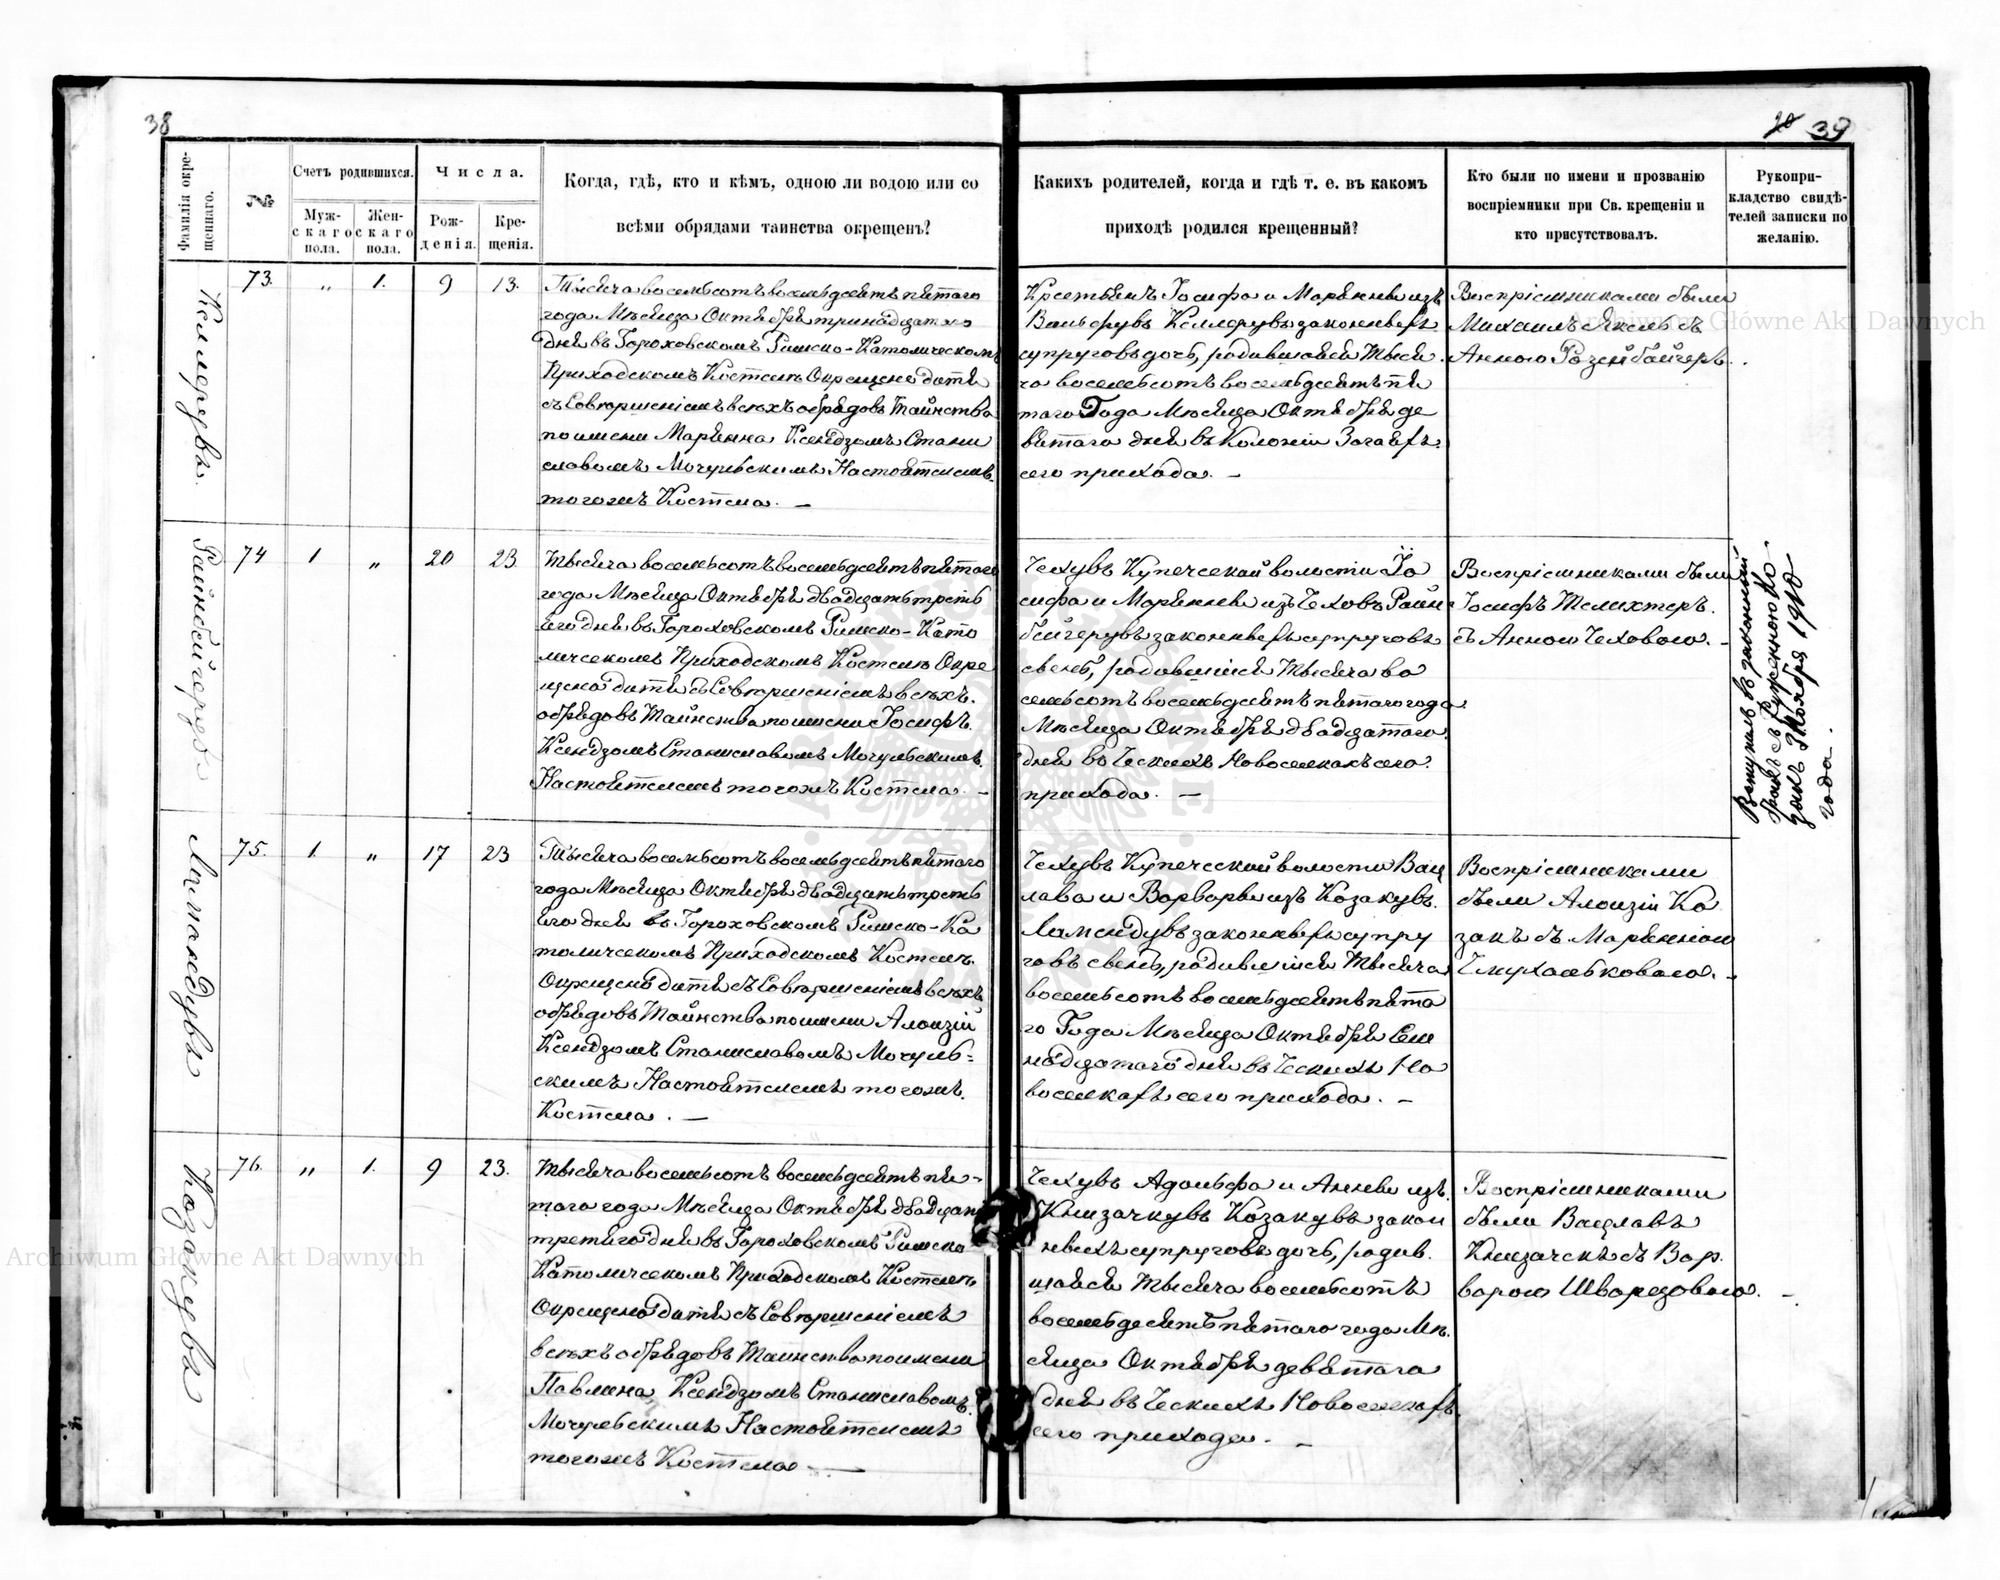 38
39
Фамилія окре-
щеннаго.
№
Счетъ родившихся.
Муж-
скаго
пола.
Жен-
скаго
пола.
Числа.
Рож-
денія.
Кре-
щенія.
Когда, гдѣ, кто и кѣмъ, одною ли водою или со
всѣми обрядами таинства окрещенъ?
Какихъ родителей, когда и гдѣ т. е. въ какомъ
приходѣ родился крещенный?
Кто были по имени и прозванію
воспріемники при Св. крещеніи и
кто присутствовалъ.
Рукопри-
кладство свидѣ-
телей записки по
желанію.
Келлерувъ.
73.
„
1.
9
13.
Тысяча восемьсотъ восемьдесятъ пятаго
года Мѣсяца Октября тринадцатаго
дня въ Гороховскомъ Римско-Католическомъ
Приходскомъ Костелѣ Окрещено дитя
съ Совершеніемъ всѣхъ обрядовъ Таинства
по имени Марянна Ксендзомъ Стани
славомъ Мочульскимъ Настоятелемъ
тогожъ Костела. —
Крестьянъ Іосифа и Марянны изъ
Келлерувъ законныхъ
супруговъ дочь, родившаяся Тыся
ча восемьсотъ восемьдесятъ пя
таго Года Мѣсяца Октября де
вятаго дня въ Колоніи
сего прихода. —
Воспріемниками были
Михаилъ съ
Анною Розенбайгеръ.
74
1
„
20
23.
Тысяча восемьсотъ восемьдесятъ пятаго
года Мѣсяца Октября двадцать треть
яго дня въ Гороховскомъ Римско-Като
лическомъ Приходскомъ Костелѣ Окре
щено дитя съ Совершеніемъ всѣхъ
обрядовъ Таинства по имени Іосифъ
Ксендзомъ Станиславомъ Мочульскимъ
Настоятелемъ тогожъ Костела. —
Чехувъ Купечской волости Іо
сифа и Марянны изъ Чеховъ Райн
бейгерувъ законныхъ супруговъ
сынъ, родившійся Тысяча во
семьсотъ восемьдесятъ пятаго года
Мѣсяца Октября двадцатаго
дня въ Ческихъ Новоселкахъ сего
прихода. —
Воспріемниками были
Іосифъ
съ Анною Чеховою. -
Вступилъ въ законный
бракъ съ
1910
года.
75.
1.
„
17
23
Тысяча восемьсотъ восемьдесятъ пятаго
года Мѣсяца Октября двадцать треть
яго дня въ Гороховскомъ Римско-Ка
толическомъ Приходскомъ Костелѣ
Окрещено дитя съ Совершеніемъ всѣхъ
обрядовъ Таинства по имени Алоизій
Ксендзомъ Станиславомъ Мочуль-
скимъ Настоятелемъ тогожъ
Костела. —
Чехувъ Купечской волости Вац
лава и Варвары изъ Козакувъ
законныхъ супру
говъ сынъ, родившійся Тысяча
восемьсотъ восемьдесятъ пята
го Года Мѣсяца Октября Сем
надцатаго дня въ Ческихъ Но
воселкахъ сего прихода. —
Воспріемниками
были Алоизій Ко
закъ съ Маріанною
Козакувъ
76.
„
1.
9
23.
Тысяча восемьсотъ восемьдесятъ пя-
таго года Мѣсяца Октября двадцать
третьяго дня въ Гороховскомъ Римско
Католическомъ Приходскомъ Костелѣ
Окрещено дитя съ Совершеніемъ
всѣхъ обрядовъ Таинства по имени
Павлина, Ксендзомъ Станиславомъ
Мочульскимъ Настоятелемъ
тогожъ Костела —
Чехувъ Адольфа и Анны изъ
Козакувъ закон
ныхъ супруговъ дочь, родив
шаяся Тысяча восемьсотъ
восемьдесятъ пятаго года Мѣ
сяца Октября девятаго
дня въ Ческихъ Новоселкахъ
сего прихода. —
Воспріемниками
были Вацлавъ
съ Вар
варою Шварцовою. -
Archiwum Główne Akt Dawnych
Archiwum Główne Akt Dawnych